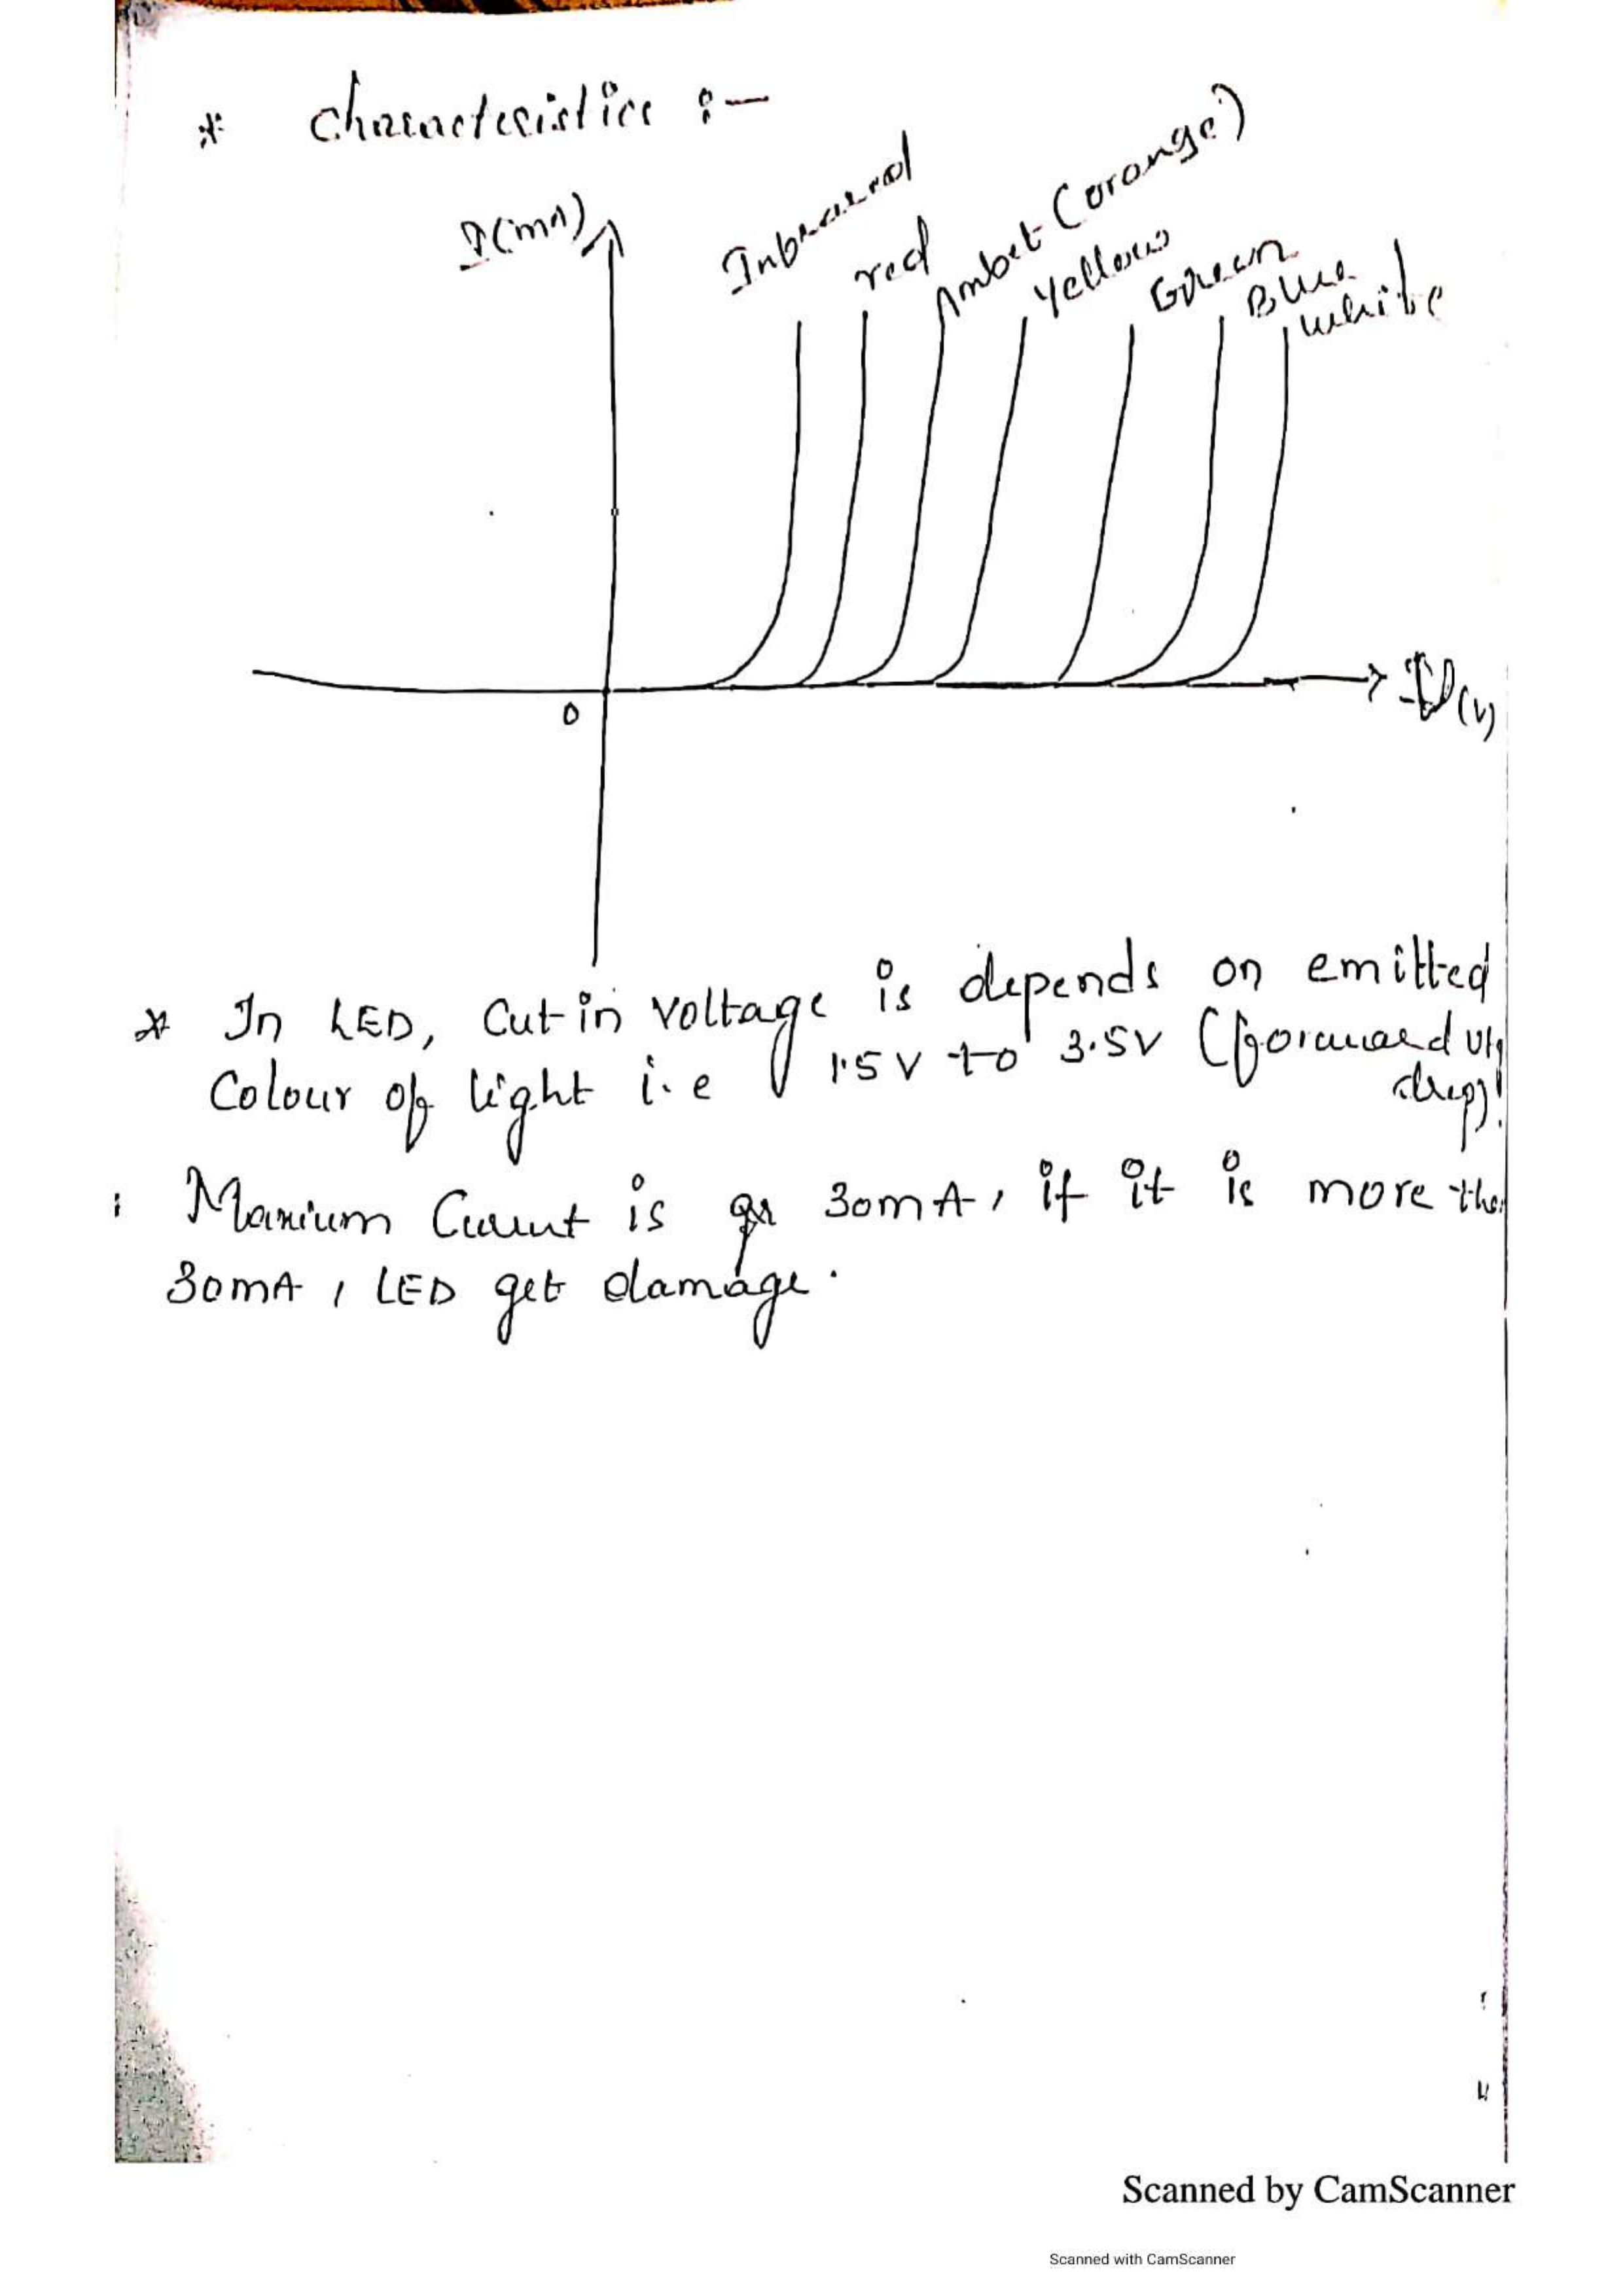 * Characteristics :-
I(mA)
Infrared
red
Amber (orange)
Yellow
Green
Blue
white
0
(V)
* In LED, Cut-in voltage is depends on emitted
Colour of light i.e 1.5V to 3.5V (forward vtg
drop)
Maxium Current is 30mA, if it is more tha
30mA, LED get damage.
Scanned by CamScanner
Scanned with CamScanner